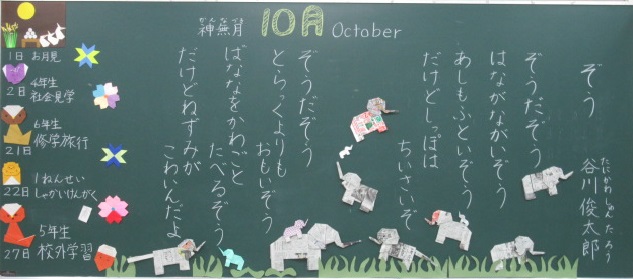 10月 October
神無月
かんなづき
ぞう
谷川俊太郎
たにかわしゅんたろう
ぞうだぞう
はながながいぞう
あしもふといぞう
だけどしっぽは
ちいさいぞ
ぞうだぞう
とらっくよりも
おもいぞう
ばななをかわごと
たべるぞう
だけどねずみが
こわいんだよ
1日 お月見
2日 4年生
社会見学
21日 6年生
修学旅行
22日 1ねんせい
しゃかいけんがく
27日 5年生
校外学習